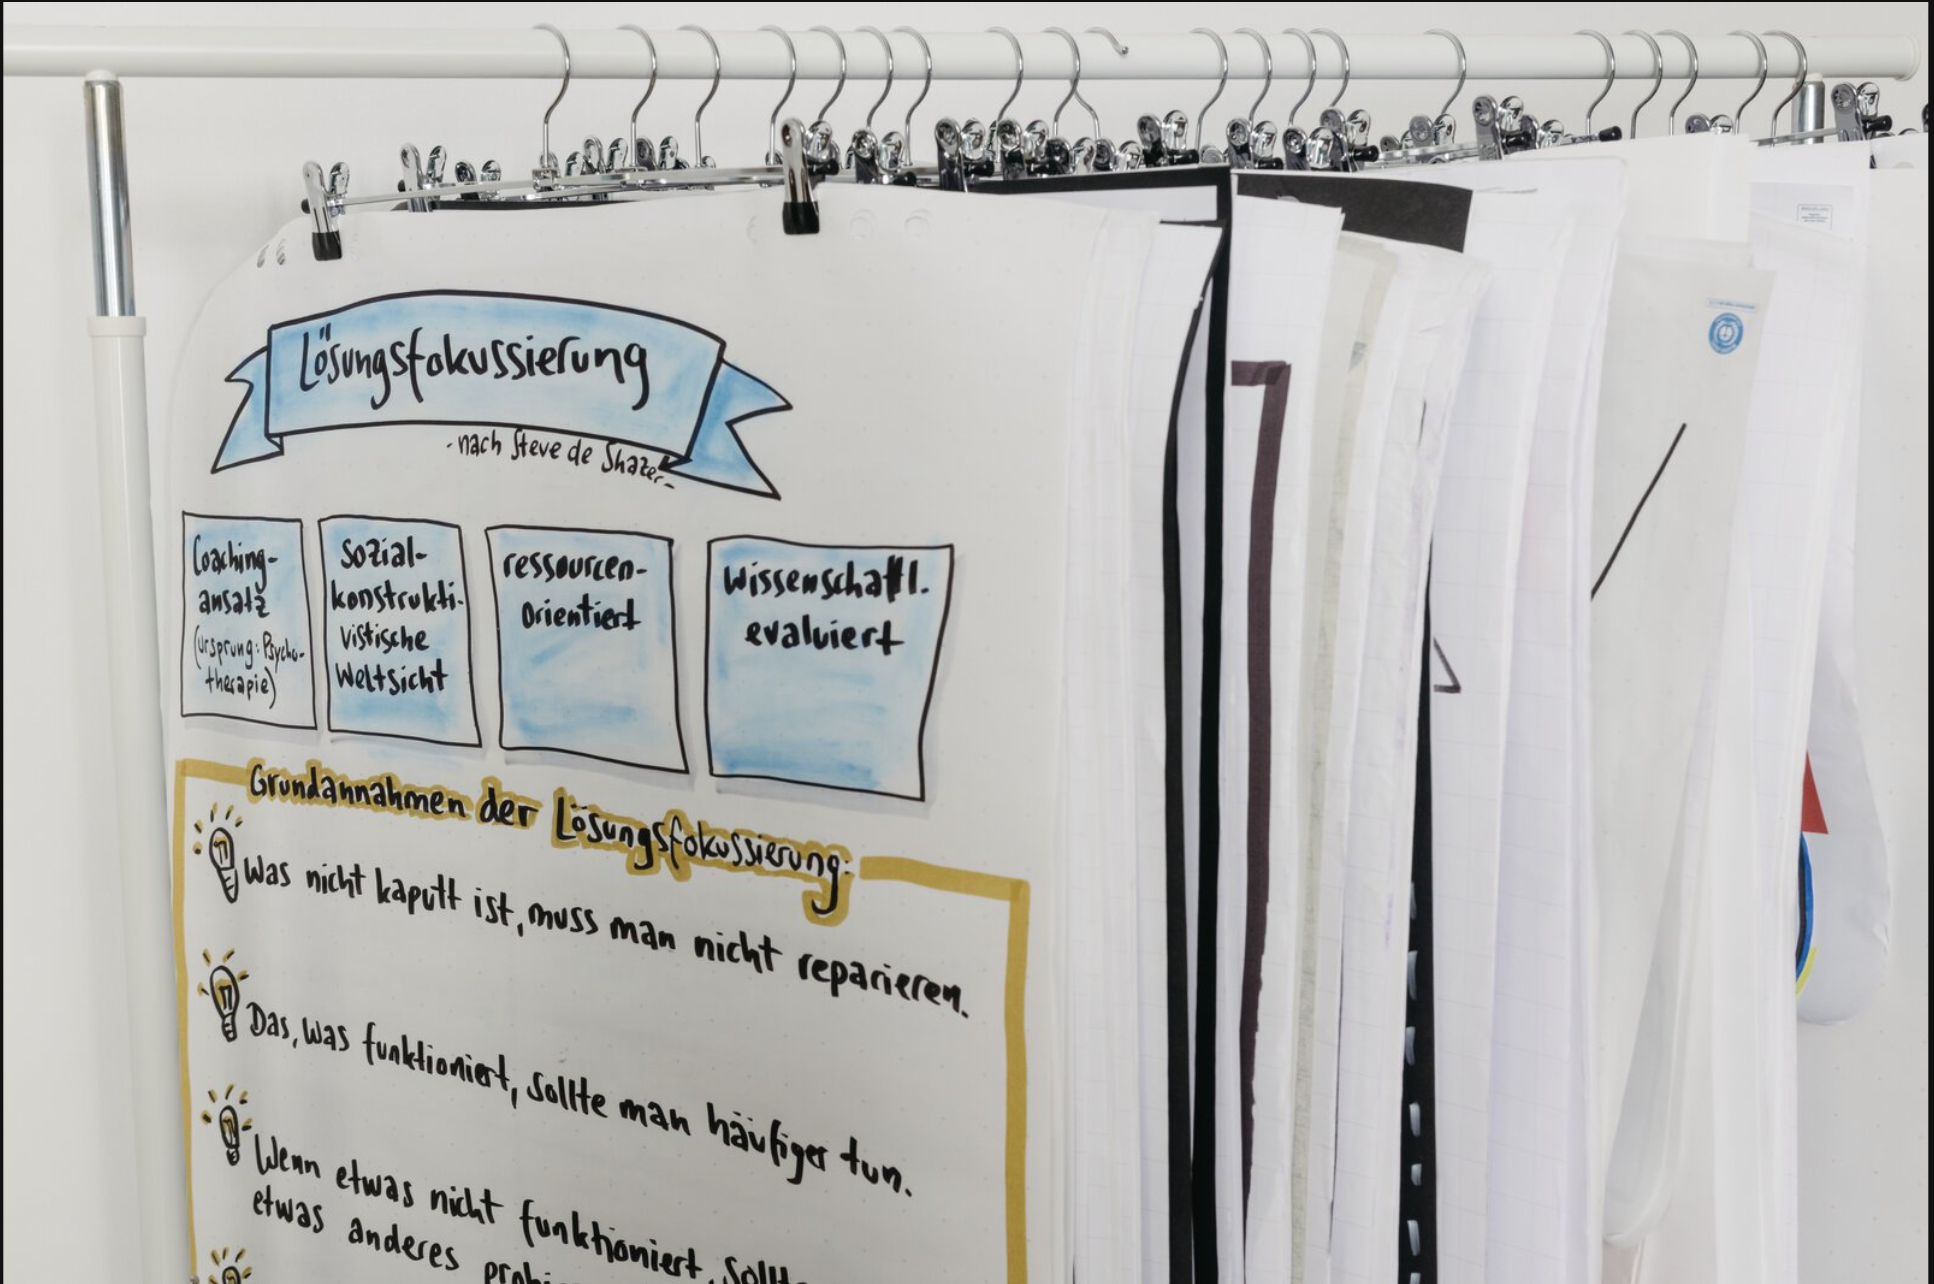 Lösungsfokussierung
- nach Steve de Shazer -
Coaching-
ansatz
(Ursprung: Psycho-
therapie)
Sozial-
konstrukti-
vistische
Weltsicht
ressourcen-
orientiert
wissenschaftl.
evaluiert
Grundannahmen der Lösungsfokussierung:
Was nicht kaputt ist, muss man nicht reparieren.
Das, was funktioniert, sollte man häufiger tun.
Wenn etwas nicht funktioniert, sollte
etwas anderes